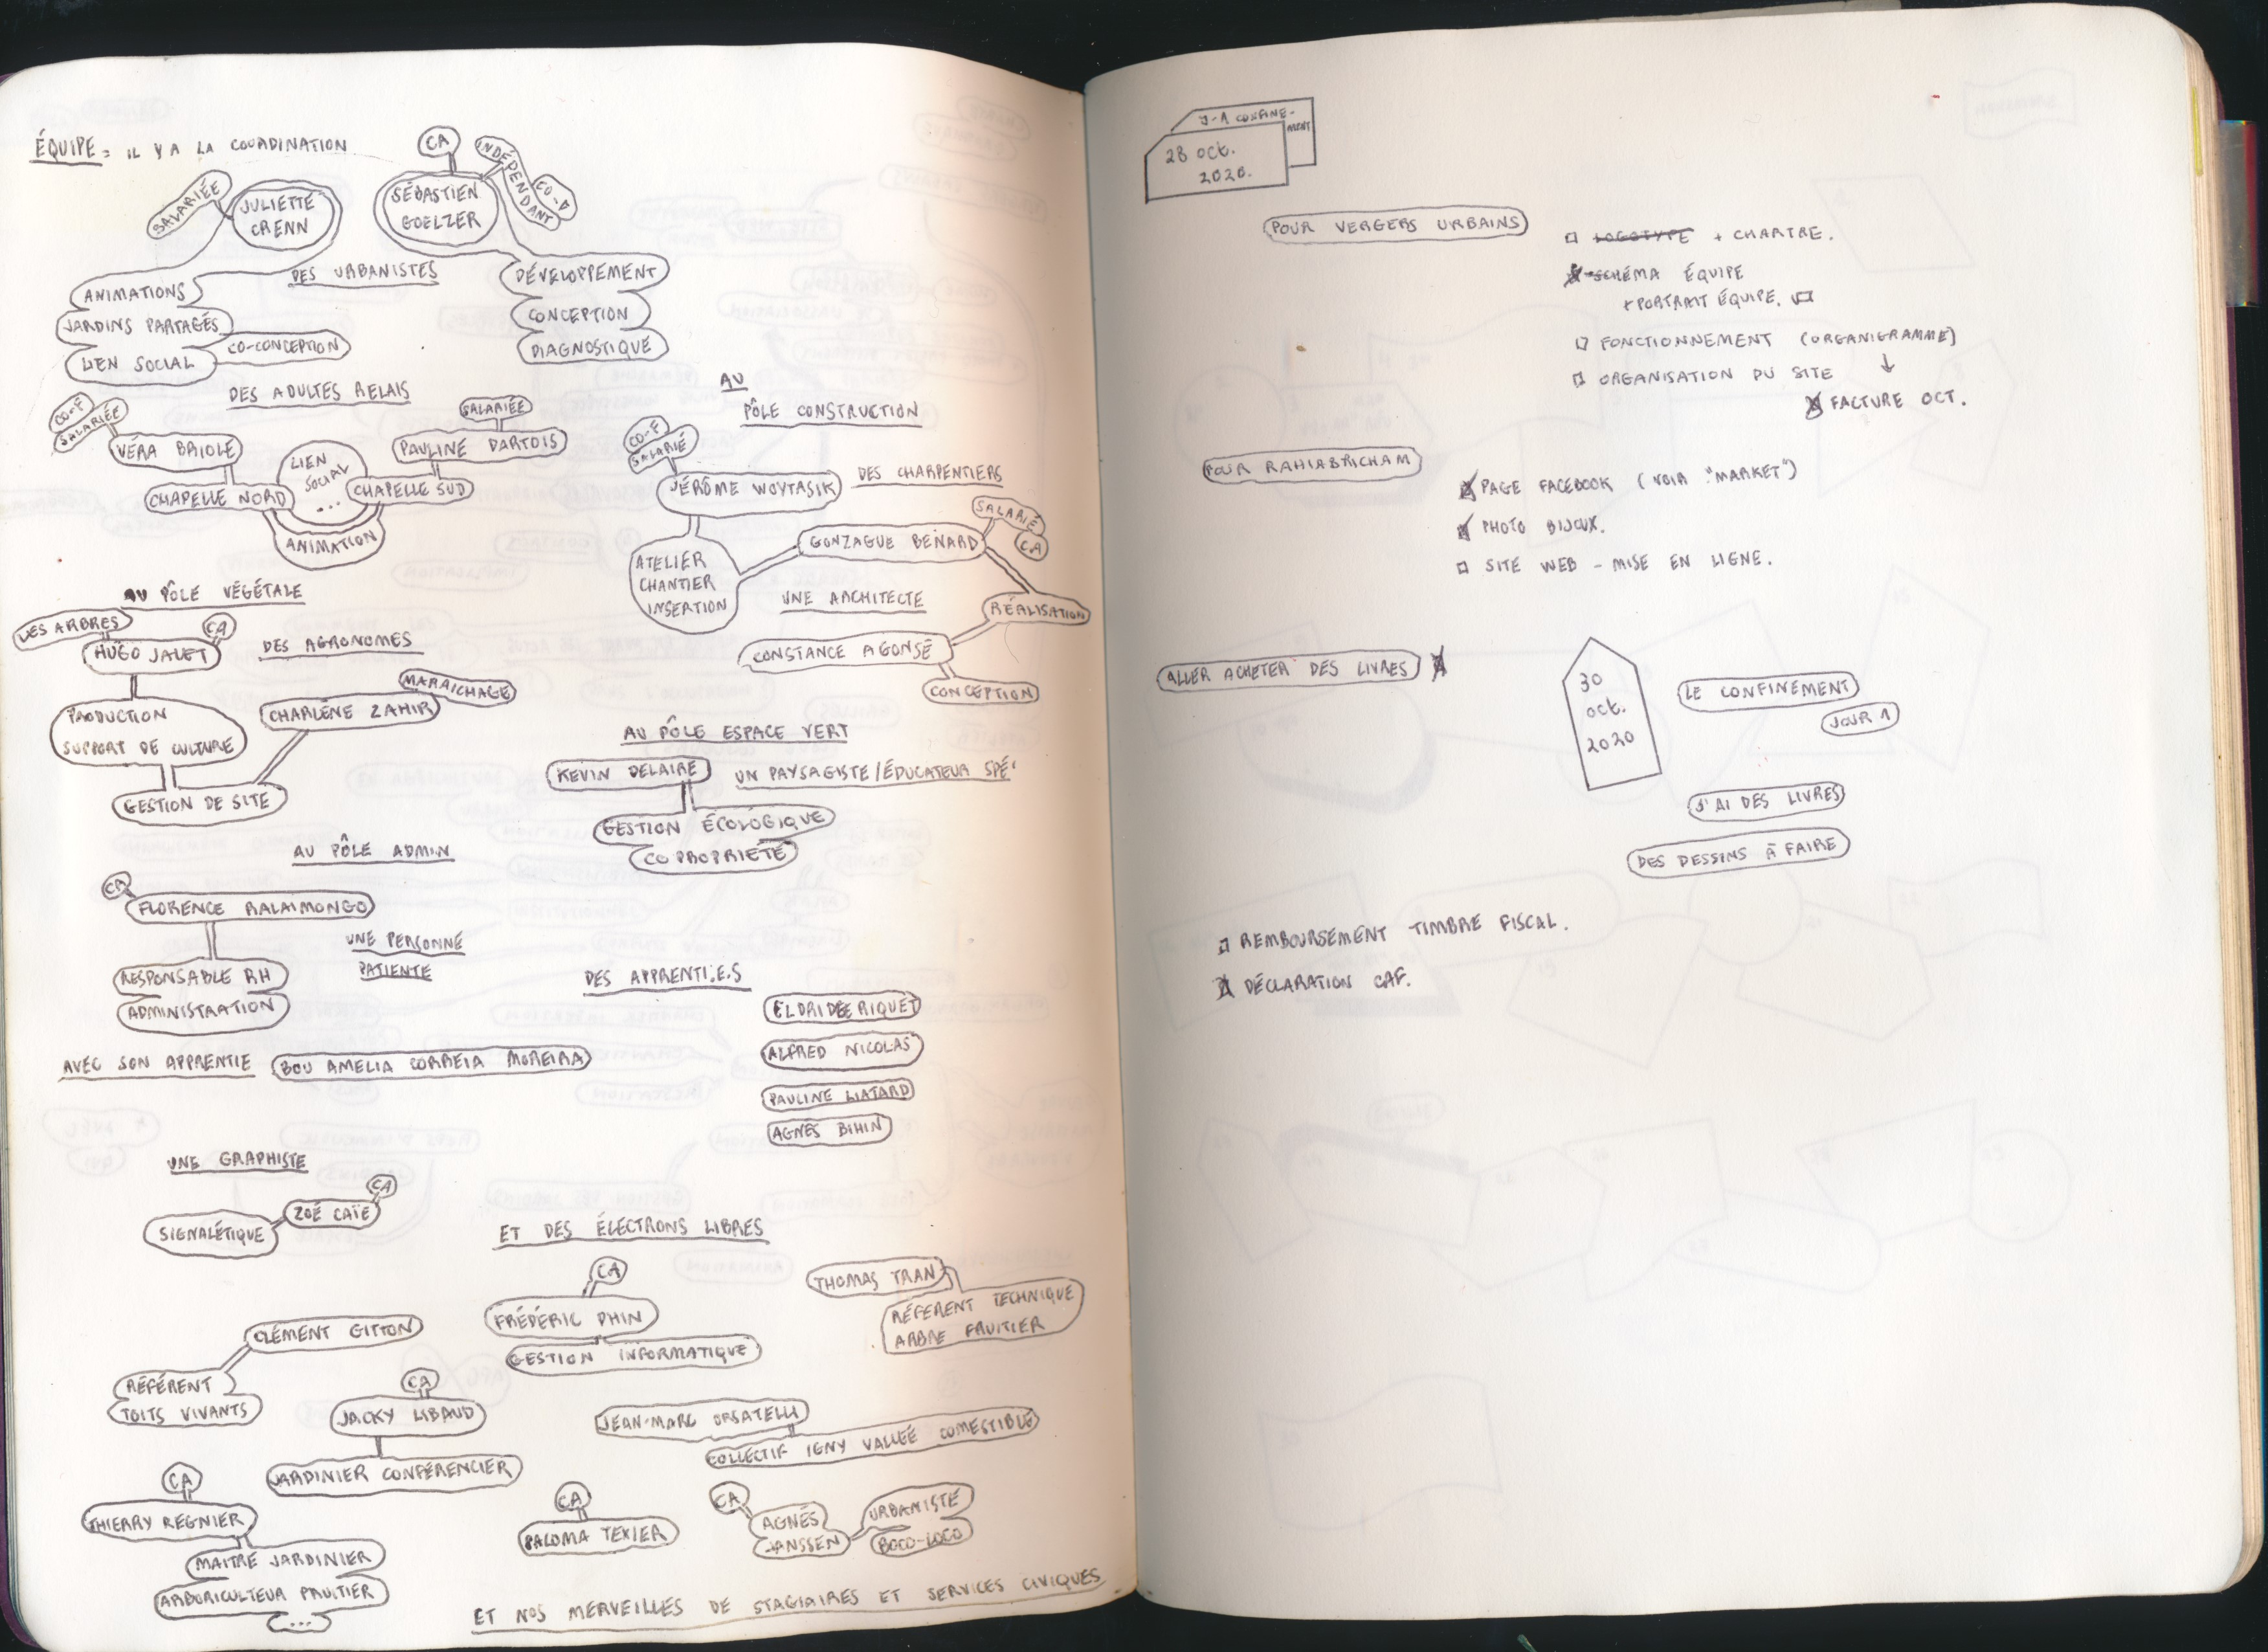 ÉQUIPE = IL Y A LA COORDINATION
CA
INDÉPENDANT
CO-D
SALARIÉE
JULIETTE
CRENN
SÉBASTIEN
GOELZER
DES URBANISTES
ANIMATIONS
JARDINS PARTAGÉS
LIEN SOCIAL
CO-CONCEPTION
DÉVELOPPEMENT
CONCEPTION
DIAGNOSTIQUE
DES ADULTES RELAIS
CO-F
SALARIÉE
VÉRA BRIOLE
CHAPELLE NORD
LIEN
SOCIAL
...
SALARIÉE
PAULINE DARTOIS
CHAPELLE SUD
ANIMATION
AU
PÔLE CONSTRUCTION
CO-F
SALARIÉ
JÉRÔME WOYTASIK
DES CHARPENTIERS
SALARIÉ
CA
GONZAGUE BENARD
ATELIER
CHANTIER
INSERTION
UNE ARCHITECTE
RÉALISATION
CONSTANCE AGONSÉ
CONCEPTION
AU PÔLE VÉGÉTALE
LES ARBRES
CA
HUGO JALET
DES AGRONOMES
MARAICHAGE
CHARLÈNE ZAHIR
PRODUCTION
SUPPORT DE CULTURE
GESTION DE SITE
AU PÔLE ESPACE VERT
KEVIN DELAIRE
UN PAYSAGISTE/ÉDUCATEUR SPÉ'
GESTION ÉCOLOGIQUE
COPROPRIETÉ
AU PÔLE ADMIN
CA
FLORENCE RALAIMONGO
UNE PERSONNE
PATIENTE
RESPONSABLE RH
ADMINISTRATION
AVEC SON APPRENTIE BOU AMELIA CORREIA MOREIRA
DES APPRENTI.E.S
RIQUET
ALFRED NICOLAS
PAULINE LIATARD
AGNÈS BIHIN
UNE GRAPHISTE
CA
ZOÉ CAÏE
SIGNALÉTIQUE
ET DES ÉLECTRONS LIBRES
CA
FRÉDÉRIC DHIN
GESTION INFORMATIQUE
THOMAS TRAN
RÉFÉRENT TECHNIQUE
ARBRE FRUITIER
CLÉMENT GITTON
RÉFÉRENT
TOITS VIVANTS
CA
JACKY LIBAUD
JARDINIER CONFÉRENCIER
JEAN-MARC ORSATELLI
COLLECTIF IGNY VALLÉE COMESTIBLE
CA
THIERRY REGNIER
MAITRE JARDINIER
ARBORICULTEUR FRUITIER
(...)
CA
PALOMA TEXIER
CA
AGNÈS
JANSSEN
URBANISTE
BOCO-LOCO
ET NOS MERVEILLES DE STAGIAIRES ET SERVICES CIVIQUES
J-1 CONFINE-
MENT
28 OCT.
2020.
POUR VERGERS URBAINS
LOGOTYPE + CHARTRE.
SCHÉMA ÉQUIPE
+ PORTRAIT ÉQUIPE.
FONCTIONNEMENT (ORGANIGRAMME)
ORGANISATION DU SITE ↓
FACTURE OCT.
POUR RAHIABTICHAM
PAGE FACEBOOK (VOIR "MARKET")
PHOTO BIJOUX.
SITE WEB - MISE EN LIGNE.
ALLER ACHETER DES LIVRES
30
oct.
2020
LE CONFINEMENT
JOUR 1
J'AI DES LIVRES
DES DESSINS À FAIRE
REMBOURSEMENT TIMBRE FISCAL.
DÉCLARATION CAF.